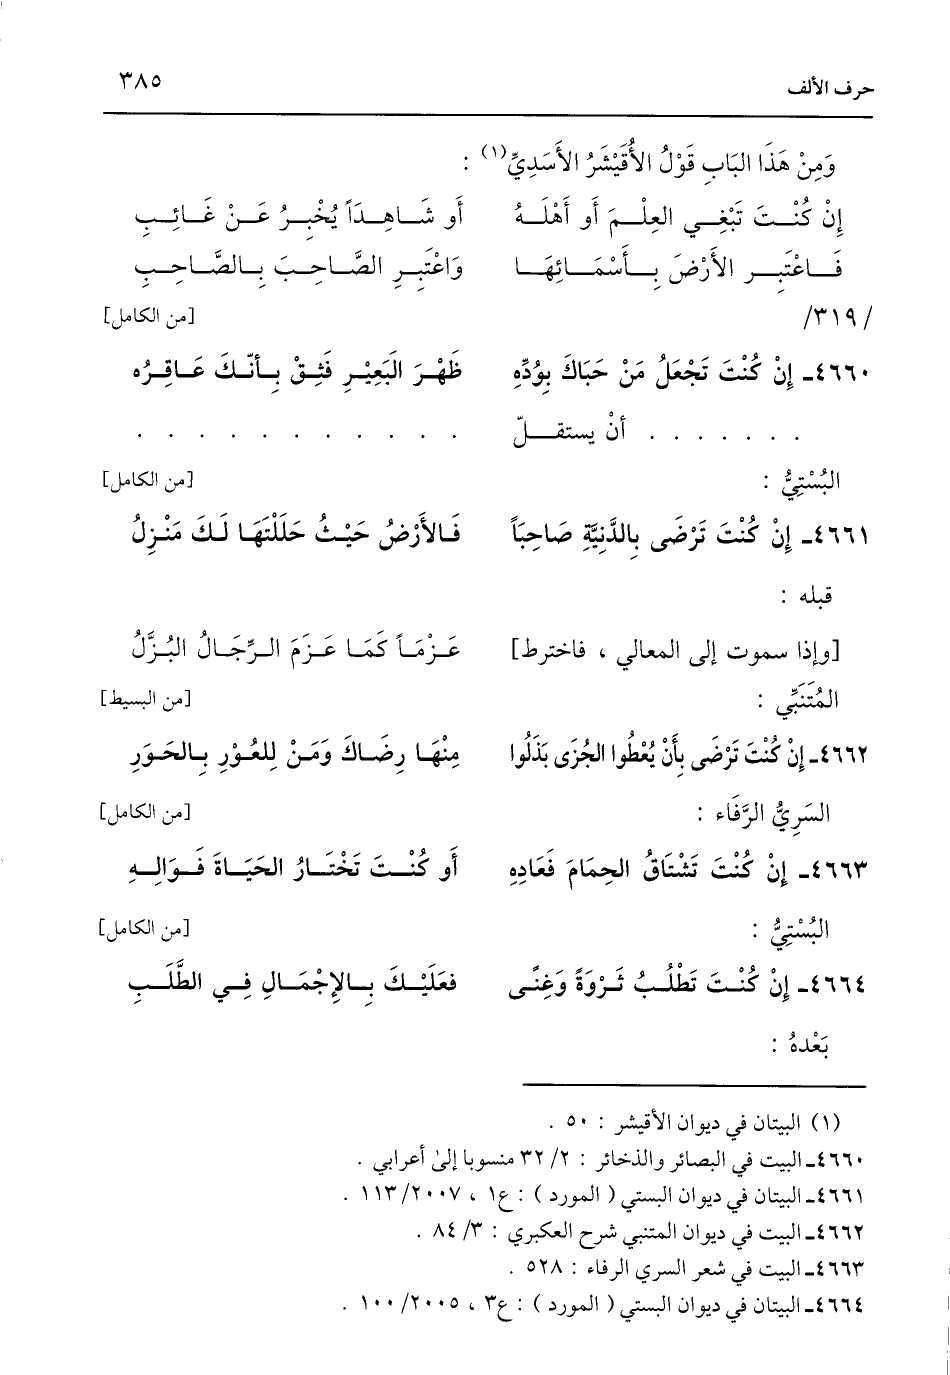 حرف الألف ٣٨٥
وَمِنْ هَذَا البَابِ قَوْلُ الأُقَيْشَرُ الأَسَدِيِّ(١) :
إِنْ كُنْتَ تَبْغِي العِلْمَ أَو أَهْلَهُ أَو شَاهِدَاً يُخْبِرُ عَنْ غَائِبِ
فَاعْتَبِرِ الأَرْضَ بِأَسْمَائِهَا وَاعْتَبِرِ الصَّاحِبَ بِالصَّاحِبِ
/٣١٩/ [من الكامل]
٤٦٦٠ـ إِنْ كُنْتَ تَجْعَلُ مَنْ حَبَاكَ بِوُدِّهِ ظَهْرَ البَعِيْرِ فَثِقْ بِأَنّكَ عَاقِرُه
. . . . . . . أنْ يستقلّ . . . . . . . . . . .
البُسْتِيُّ : [من الكامل]
٤٦٦١ـ إِنْ كُنْتَ تَرْضَى بِالدَّنِيَّةِ صَاحِبَاً فَالأَرْضُ حَيْثُ حَلَلْتَهَا لَكَ مَنْزِلُ
قبله :
[وإذا سموت إلى المعالي ، فاخترط] عَزْمَاً كَمَا عَزَمَ الرِّجَالُ البُزَّلُ
المُتَنَبِّي : [من البسيط]
٤٦٦٢ـ إِنْ كُنْتَ تَرْضَى بِأَنْ يُعْطُوا الجُزَى بَذَلُوا مِنْهَا رِضَاكَ وَمَنْ لِلعُوْرِ بِالحَوَرِ
السَرِيُّ الرَّفَاء : [من الكامل]
٤٦٦٣ـ إِنْ كُنْتَ تَشْتَاقُ الحِمَامَ فَعَادِهِ أَو كُنْتَ تَخْتَارُ الحَيَاةَ فَوَالِهِ
البُسْتِيُّ : [من الكامل]
٤٦٦٤ـ إِنْ كُنْتَ تَطْلُبُ ثَرْوَةً وَغِنًى فَعَلَيْكَ بِالإِجْمَالِ فِي الطَّلَبِ
بَعْدهُ :
(١) البيتان في ديوان الأقيشر : ٥٠ .
٤٦٦٠ـ البيت في البصائر والذخائر : ٢/ ٣٢ منسوبا إلىٰ أعرابي .
٤٦٦١ـ البيتان في ديوان البستي ( المورد ) : ع١ ، ٢٠٠٧/ ١١٣ .
٤٦٦٢ـ البيت في ديوان المتنبي شرح العكبري : ٣/ ٨٤ .
٤٦٦٣ـ البيت في شعر السري الرفاء : ٥٢٨ .
٤٦٦٤ـ البيتان في ديوان البستي ( المورد ) : ع٣ ، ٢٠٠٥/ ١٠٠ .